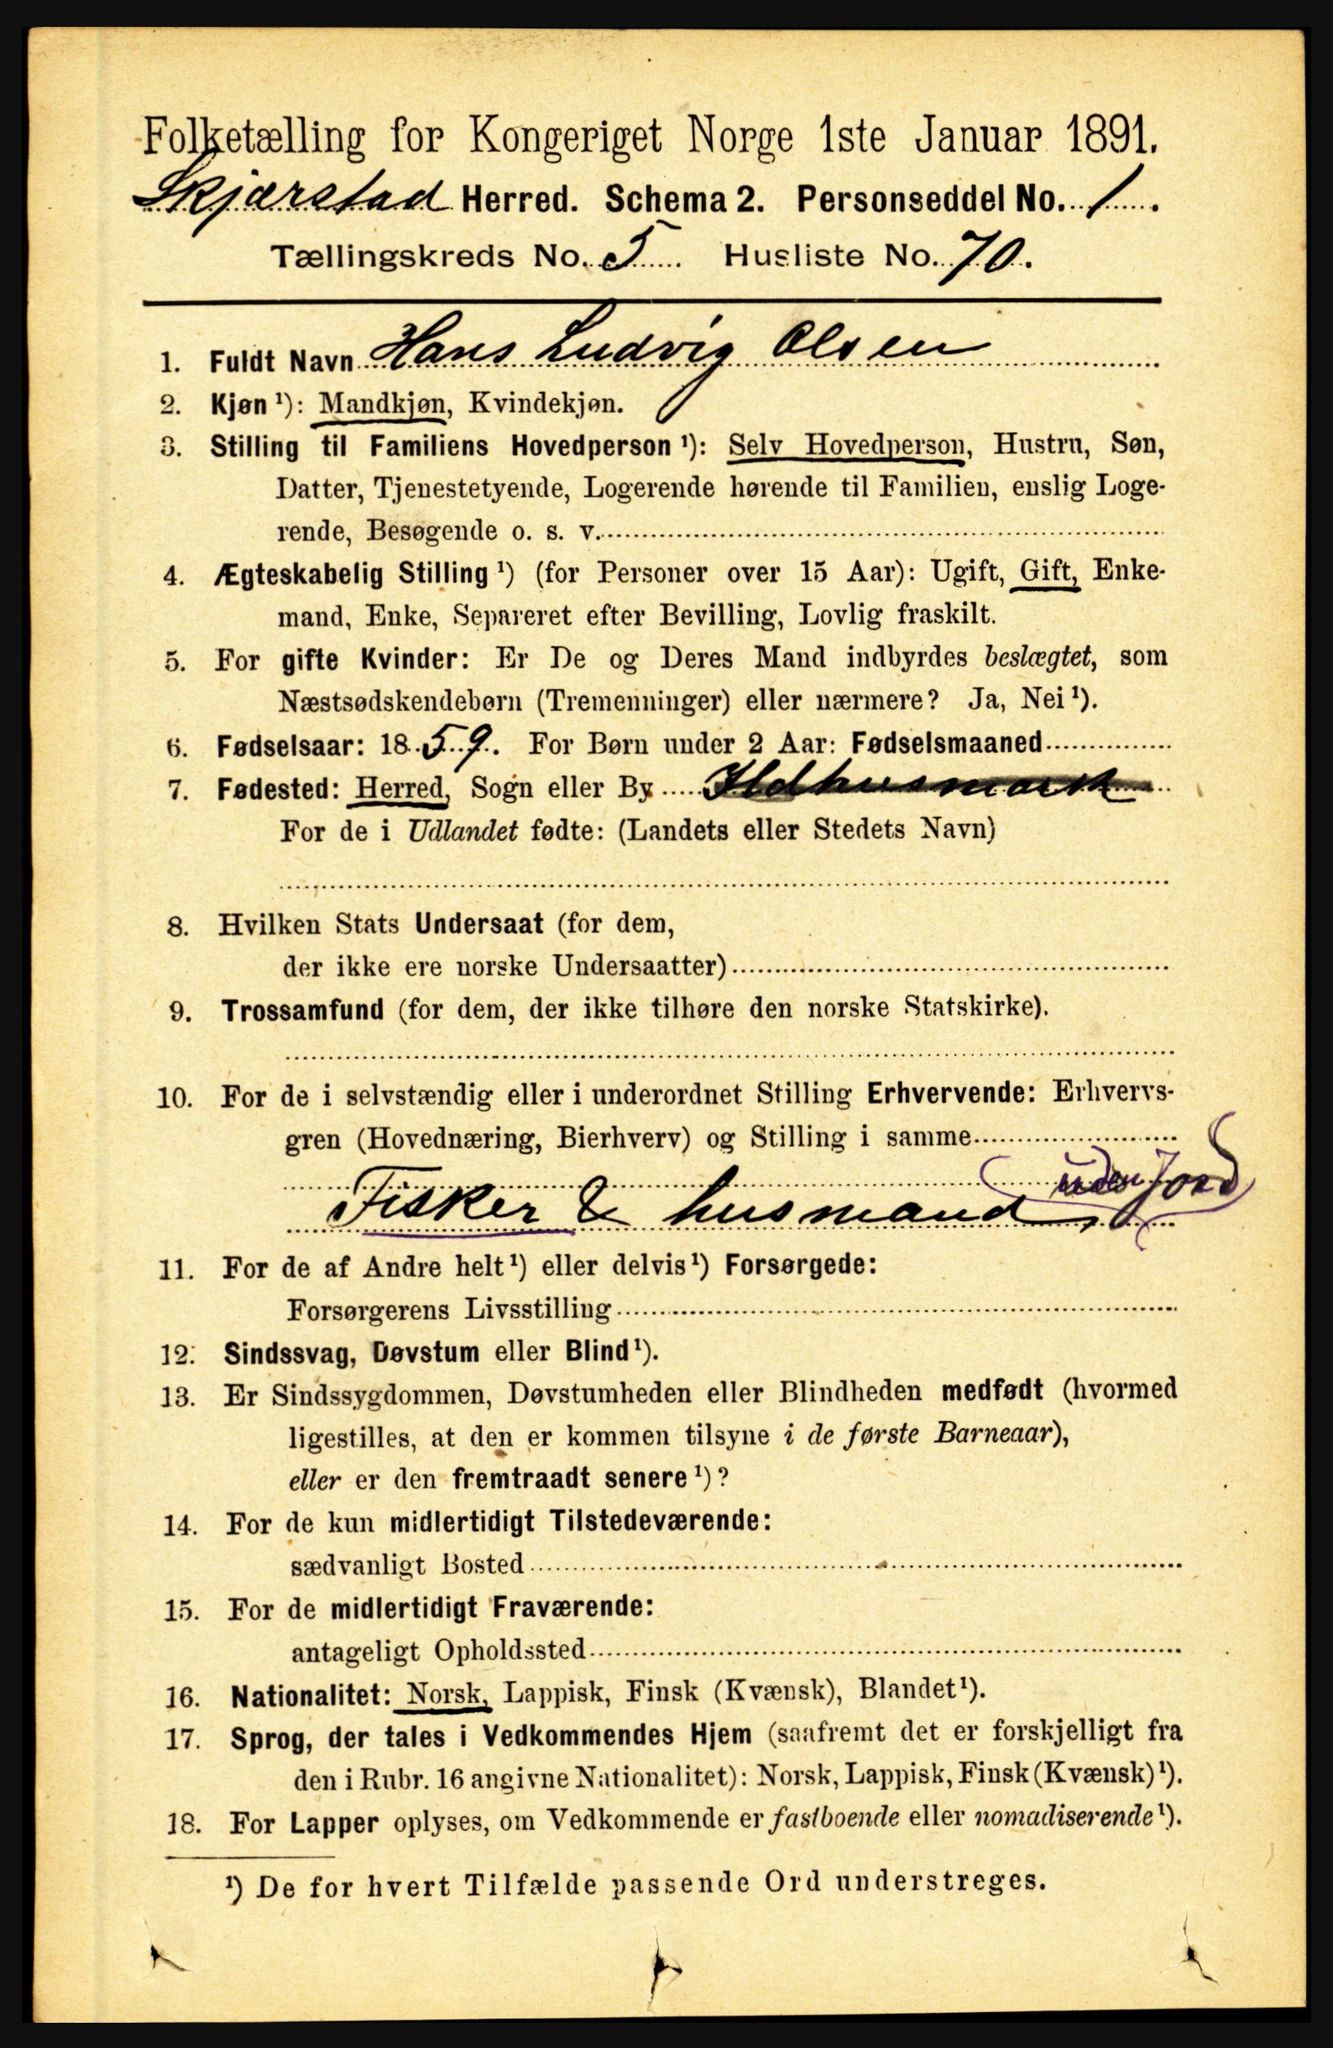 Folketælling for Kongeriget Norge 1ste Januar 1891.
Skjærstad Herred. Schema 2. Personseddel No. 1.
Tællingskreds No. 5 Husliste No. 70.
1. Fuldt Navn Hans Ludvig Olsen
2. Kjøn¹): Mandkjøn, Kvindekjøn.
3. Stilling til Familiens Hovedperson¹): Selv Hovedperson, Hustru, Søn,
Datter, Tjenestetyende, Logerende hørende til Familien, enslig Loge-
rende, Besøgende o. s. v.
4. Ægteskabelig Stilling¹) (for Personer over 15 Aar): Ugift, Gift, Enke-
mand, Enke, Separeret efter Bevilling, Lovlig fraskilt.
5. For gifte Kvinder: Er De og Deres Mand indbyrdes beslægtet, som
Næstsødskendebørn (Tremenninger) eller nærmere? Ja, Nei¹).
6. Fødselsaar: 1859. For Børn under 2 Aar: Fødselsmaaned
7. Fødested: Herred, Sogn eller By
For de i Udlandet fødte: (Landets eller Stedets Navn)
8. Hvilken Stats Undersaat (for dem,
der ikke ere norske Undersaatter)
9. Trossamfund (for dem, der ikke tilhøre den norske Statskirke).
10. For de i selvstændig eller i underordnet Stilling Erhvervende: Erhvervs-
gren (Hovednæring, Bierhverv) og Stilling i samme
Fisker & husmand, uden Jord
11. For de af Andre helt¹) eller delvis¹) Forsørgede:
Forsørgerens Livsstilling
12. Sindssvag, Døvstum eller Blind¹).
13. Er Sindssygdommen, Døvstumheden eller Blindheden medfødt (hvormed
ligestilles, at den er kommen tilsyne i de første Barneaar),
eller er den fremtraadt senere¹)?
14. For de kun midlertidigt Tilstedeværende:
sædvanligt Bosted
15. For de midlertidigt Fraværende:
antageligt Opholdssted
16. Nationalitet: Norsk, Lappisk, Finsk (Kvænsk), Blandet¹).
17. Sprog, der tales i Vedkommendes Hjem (saafremt det er forskjelligt fra
den i Rubr. 16 angivne Nationalitet): Norsk, Lappisk, Finsk (Kvænsk)¹).
18. For Lapper oplyses, om Vedkommende er fastboende eller nomadiserende¹).
¹) De for hvert Tilfælde passende Ord understreges.